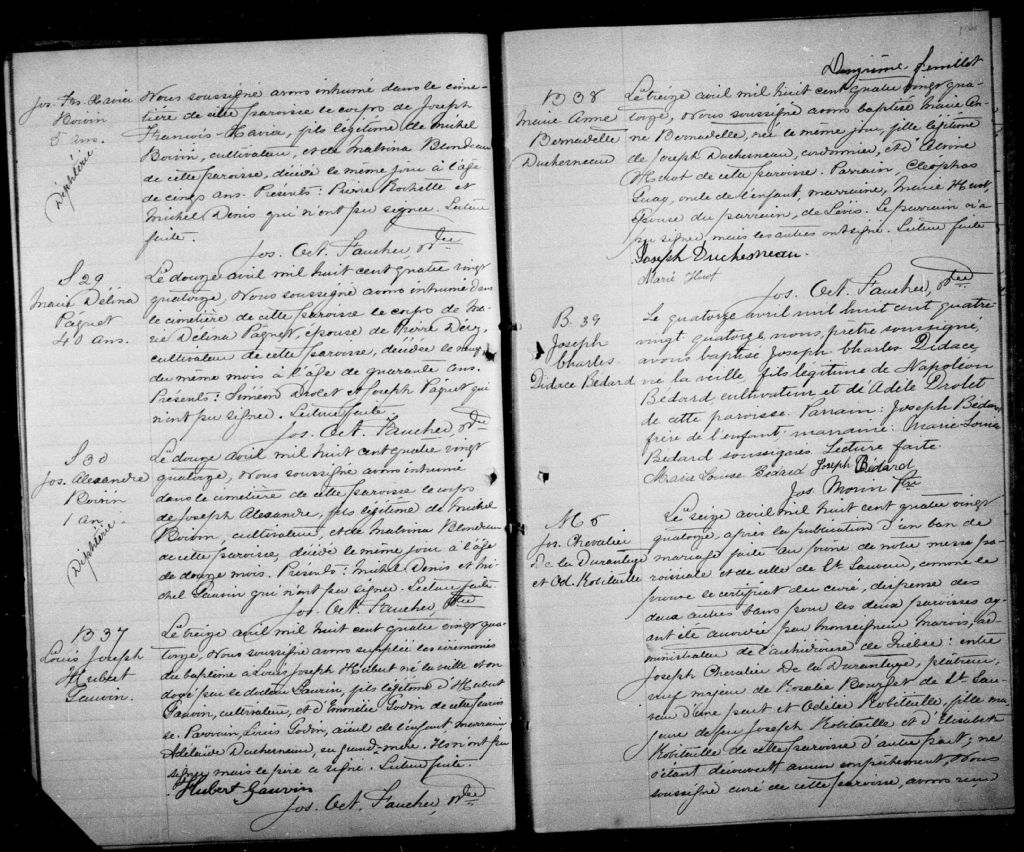 Jos. Frs. Xavier
Boivin
5 ans.
Diphtérie
Nous soussigné avons inhumé dans le cime-
tière de cette paroisse le corps de Joseph
François-Xavier, fils légitime de Michel
Boivin, cultivateur, et de Malvina Blondeau
de cette paroisse, décédé le même jour à l'âge
de cinq ans. Présents: Pierre Rochette et
Michel Denis qui n'ont pu signer. Lecture
faite.
Jos. Oct. Faucher, Ptre
S 29
Marie Délina
Paquet
40 ans.
Le douze avril mil huit cent quatre vingt
quatorze, Nous soussigné avons inhumé dans
le cimetière de cette paroisse le corps de Ma-
rie Délina Paquet, épouse de Pierre Déry,
cultivateur de cette paroisse, décédée le neuf
du même mois à l'âge de quarante ans.
Présents: Siméon Drolet et Joseph Paquet qui
n'ont pu signer. Lecture faite.
Jos. Oct. Faucher Ptre
S 30
Jos. Alexandre
Boivin
1 an.
Diphtérie.
Le douze avril mil huit cent quatre vingt
quatorze, Nous soussigné avons inhumé
dans le cimetière de cette paroisse le corps
de Joseph Alexandre, fils légitime de Michel
Boivin, cultivateur, et de Malvina Blondeau
de cette paroisse, décédé le même jour à l'âge
de douze mois. Présents: Michel Denis et Mi-
chel Gauvin qui n'ont pu signer. Lecture faite.
Jos. Oct. Faucher, Ptre
B 37
Louis Joseph
Hubert
Gauvin.
Le treize avril mil huit cent quatre vingt qua-
torze, Nous soussigné avons supplée les cérémonies
du baptême à Louis Joseph Hubert né la veille et on
doyé par le docteur Laurin, fils légitime d'Hubert
Gauvin, cultivateur, et d'Emmélie Godin de cette parois
se. Parrain, Louis Godin, aïeul de l'enfant, Marraine
Adélaïde Duchesneau, sa grand-mère. Ils n'ont pu
signer mais le père a signé. Lecture faite.
Hubert Gauvin
Jos. Oct. Faucher, Ptre
Douzième feuillet
B 38
Marie Anne
Bernadette
Duchesneau
Le treize avril mil huit cent quatre vingt qua-
torze, Nous soussigné avons baptisé Marie An-
ne Bernadette, née le même jour, fille légitime
de Joseph Duchesneau, cordonnier, et d'Alvine
Huot de cette paroisse. Parrain, Cléophas
Guay, oncle de l'enfant, marraine, Marie Huot,
épouse du parrain, de Lévis. Le parrain n'a
pu signer, mais les autres ont signé. Lecture faite
Joseph Duchesneau.
Marie Huot
Jos. Oct. Faucher, Ptre
B. 39
Joseph
Charles
Didace Bédard
Le quatorze avril mil huit cent quatre
vingt quatorze, nous, prêtre soussigné,
avons baptisé Joseph Charles Didace,
né la veille, fils légitime de Napoléon
Bédard cultivateur et de Adèle Drolet
de cette paroisse. Parrain: Joseph Bédard
frère de l'enfant, marraine: Marie-Louise
Bédard soussignés. Lecture faite.
Marie Louise Bédard Joseph Bédard
Jos. Morin Ptre
M 5
Jos. Chevalier
De la Durantaye
et Od. Robitaille
Le seize avril mil huit cent quatre vingt
quatorze, après la publication d'un ban de
mariage faite au prône de notre messe pa-
roissiale et de celle de St Sauveur, comme le
prouve le certificat du curé, dispense des
deux autres bans pour ses deux paroisses ay-
ant été accordée par monseigneur Marois, ad-
ministrateur de l'archidiocèse de Québec: entre
Joseph Chevalier De la Durantaye, plâtrier,
veuf majeur de Rosalie Bourget de St Sau-
veur d'une part et Odélie Robitaille, fille ma
jeure de feu Joseph Robitaille et d'Elisabeth
Robitaille de cette paroisse d'autre part; ne
s'étant découvert aucun empêchement, Nous
soussigné curé de cette paroisse, avons reçu